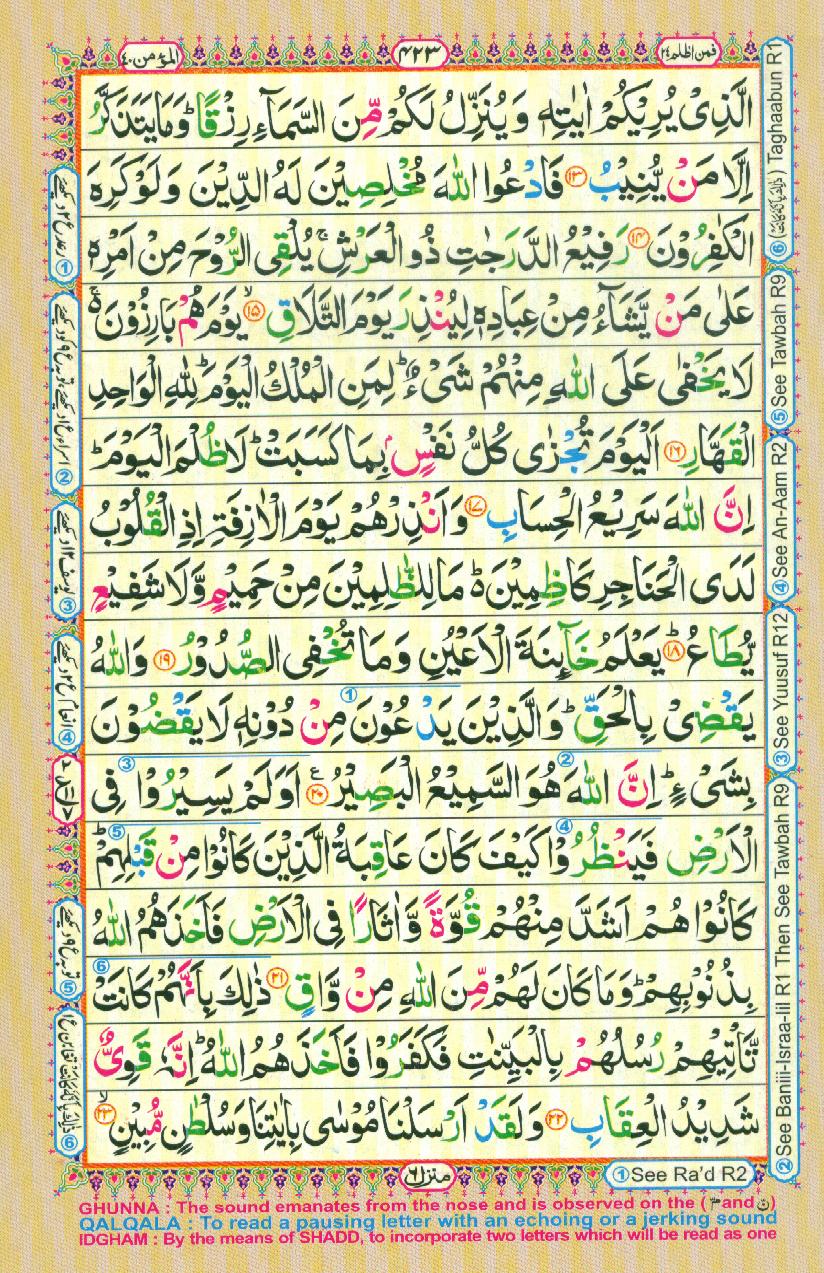 فمن اظلم ٢٤
٤٢٣
المؤمن ٤٠
الَّذِیْ یُرِیْكُمْ اٰیٰتِهٖ وَ یُنَزِّلُ لَكُمْ مِّنَ السَّمَآءِ رِزْقًاؕ وَ مَا یَتَذَكَّرُ
اِلَّا مَنْ یُّنِیْبُ ۝۱۳ فَادْعُوا اللّٰهَ مُخْلِصِیْنَ لَهُ الدِّیْنَ وَ لَوْ كَرِهَ
الْكٰفِرُوْنَ ۝۱۴ رَفِیْعُ الدَّرَجٰتِ ذُو الْعَرْشِۚ یُلْقِی الرُّوْحَ مِنْ اَمْرِهٖ
عَلٰى مَنْ یَّشَآءُ مِنْ عِبَادِهٖ لِیُنْذِرَ یَوْمَ التَّلَاقِۙ ۝۱۵ یَوْمَ هُمْ بَارِزُوْنَ ۚ۬
لَا یَخْفٰى عَلَى اللّٰهِ مِنْهُمْ شَیْءٌؕ لِمَنِ الْمُلْكُ الْیَوْمَؕ لِلّٰهِ الْوَاحِدِ
الْقَهَّارِ ۝۱۶ اَلْیَوْمَ تُجْزٰى كُلُّ نَفْسٍۭ بِمَا كَسَبَتْؕ لَا ظُلْمَ الْیَوْمَؕ
اِنَّ اللّٰهَ سَرِیْعُ الْحِسَابِ ۝۱۷ وَ اَنْذِرْهُمْ یَوْمَ الْاٰزِفَةِ اِذِ الْقُلُوْبُ
لَدَى الْحَنَاجِرِ كَاظِمِیْنَ ؕ۬ مَا لِلظّٰلِمِیْنَ مِنْ حَمِیْمٍ وَّ لَا شَفِیْعٍ
یُّطَاعُؕ ۝۱۸ یَعْلَمُ خَآىٕنَةَ الْاَعْیُنِ وَ مَا تُخْفِی الصُّدُوْرُ ۝۱۹ وَ اللّٰهُ
یَقْضِیْ بِالْحَقِّؕ وَ الَّذِیْنَ یَدْعُوْنَ مِنْ دُوْنِهٖ لَا یَقْضُوْنَ
بِشَیْءٍؕ اِنَّ اللّٰهَ هُوَ السَّمِیْعُ الْبَصِیْرُ ۝۲۰ اَوَ لَمْ یَسِیْرُوْا فِی
الْاَرْضِ فَیَنْظُرُوْا كَیْفَ كَانَ عَاقِبَةُ الَّذِیْنَ كَانُوْا مِنْ قَبْلِهِمْؕ
كَانُوْا هُمْ اَشَدَّ مِنْهُمْ قُوَّةً وَّ اٰثَارًا فِی الْاَرْضِ فَاَخَذَهُمُ اللّٰهُ
بِذُنُوْبِهِمْؕ وَ مَا كَانَ لَهُمْ مِّنَ اللّٰهِ مِنْ وَّاقٍ ۝۲۱ ذٰلِكَ بِاَنَّهُمْ كَانَتْ
تَّاْتِیْهِمْ رُسُلُهُمْ بِالْبَیِّنٰتِ فَكَفَرُوْا فَاَخَذَهُمُ اللّٰهُؕ اِنَّهٗ قَوِیٌّ
شَدِیْدُ الْعِقَابِ ۝۲۲ وَ لَقَدْ اَرْسَلْنَا مُوْسٰى بِاٰیٰتِنَا وَ سُلْطٰنٍ مُّبِیْنٍۙ ۝۲۳
منزل ٦
① See Ra'd R2
② See Baniii-Israa-Iil R1 Then See Tawbah R9
③ See Yuusuf R12
④ See An-Aam R2
⑤ See Tawbah R9
⑥ Taghaabun R1
GHUNNA : The sound emanates from the nose and is observed on the ( مّ and نّ )
QALQALA : To read a pausing letter with an echoing or a jerking sound
IDGHAM : By the means of SHADD, to incorporate two letters which will be read as one